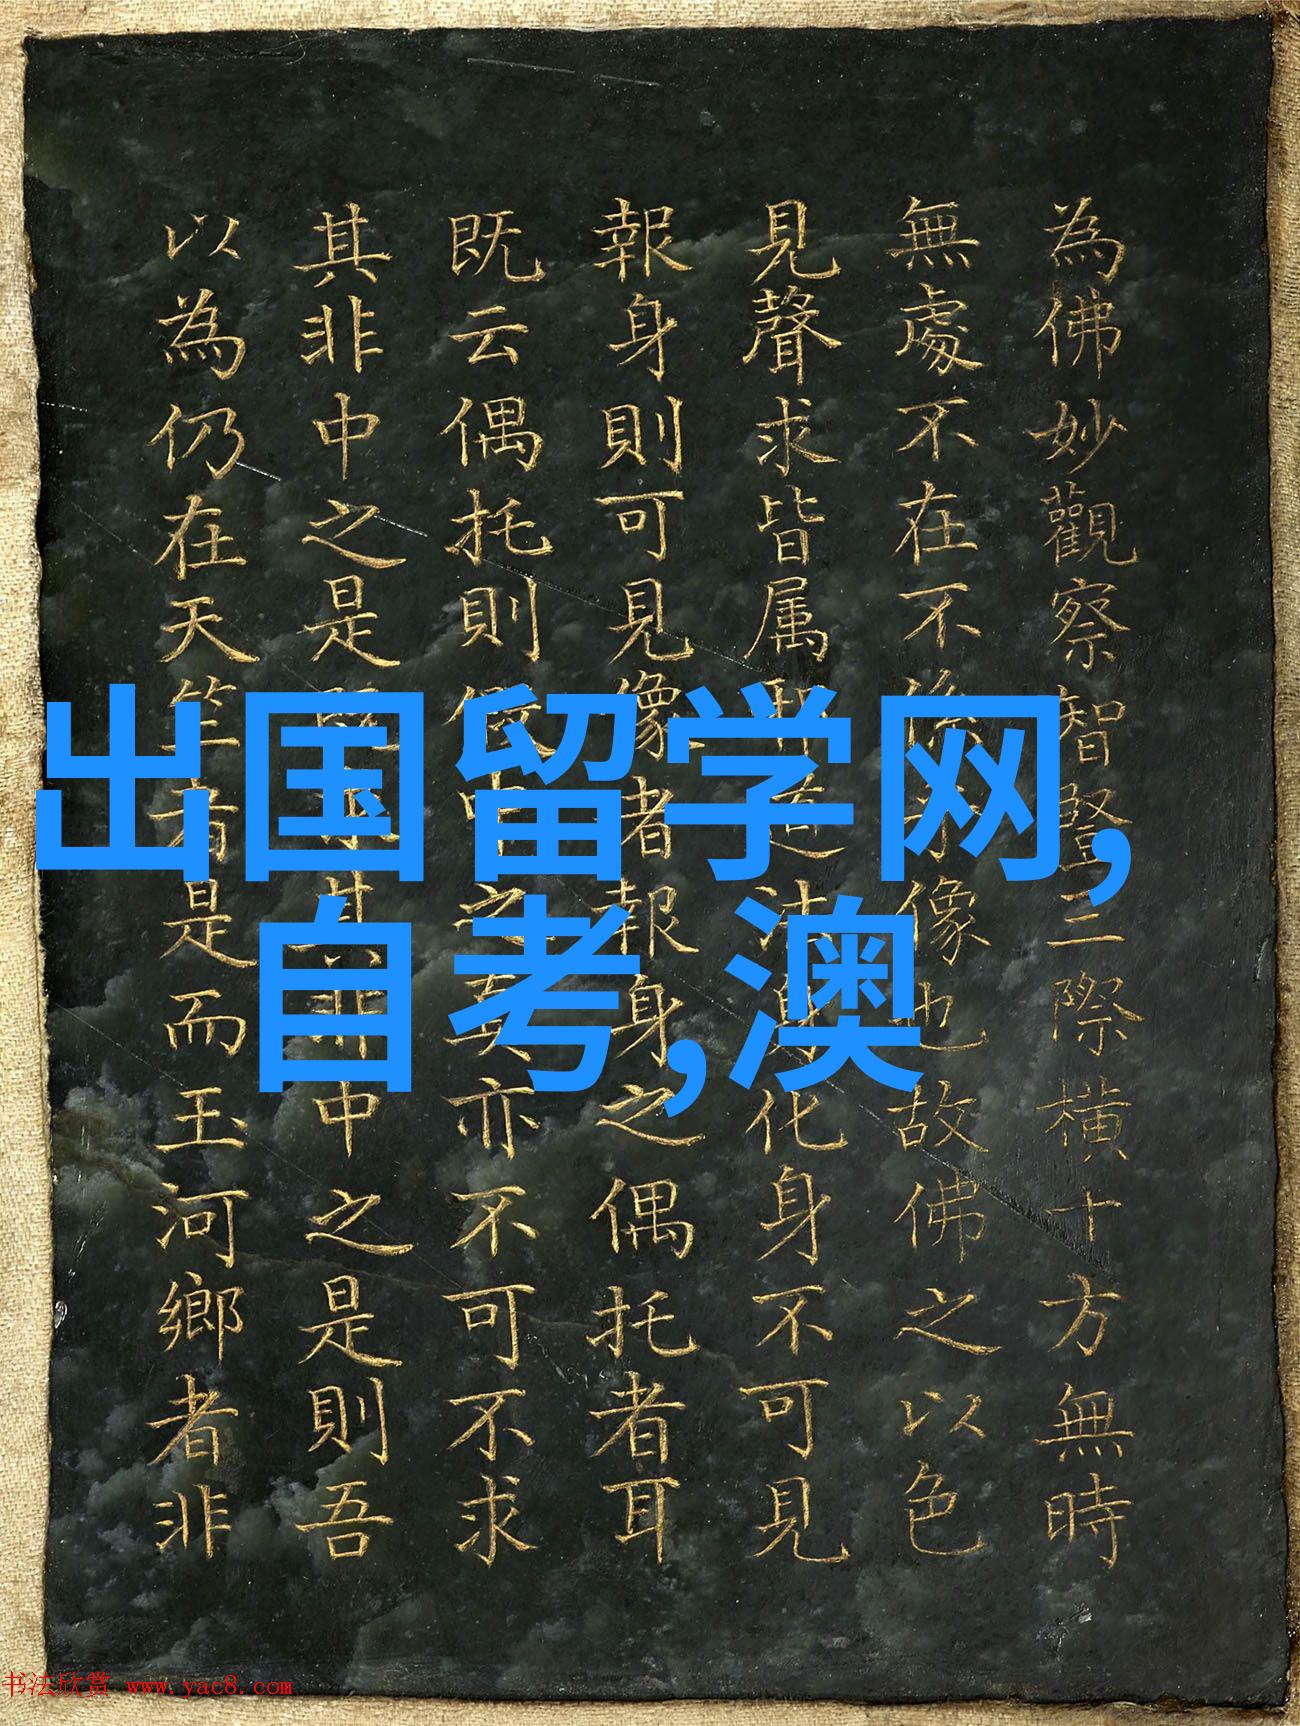 出国留学网,
自考,澳
為佛妙觀察智竪三際橫十方無時
無處不在不像也故佛之以色
見聲求皆属法身化身不可見
報身則可見像者報身之偶托者耳
既云偶托則中之妄亦不可不求
其非中之是其非中之是則吾
以為仍在天竺者是而玉河鄉者非
书法欣赏 www.yac8.com